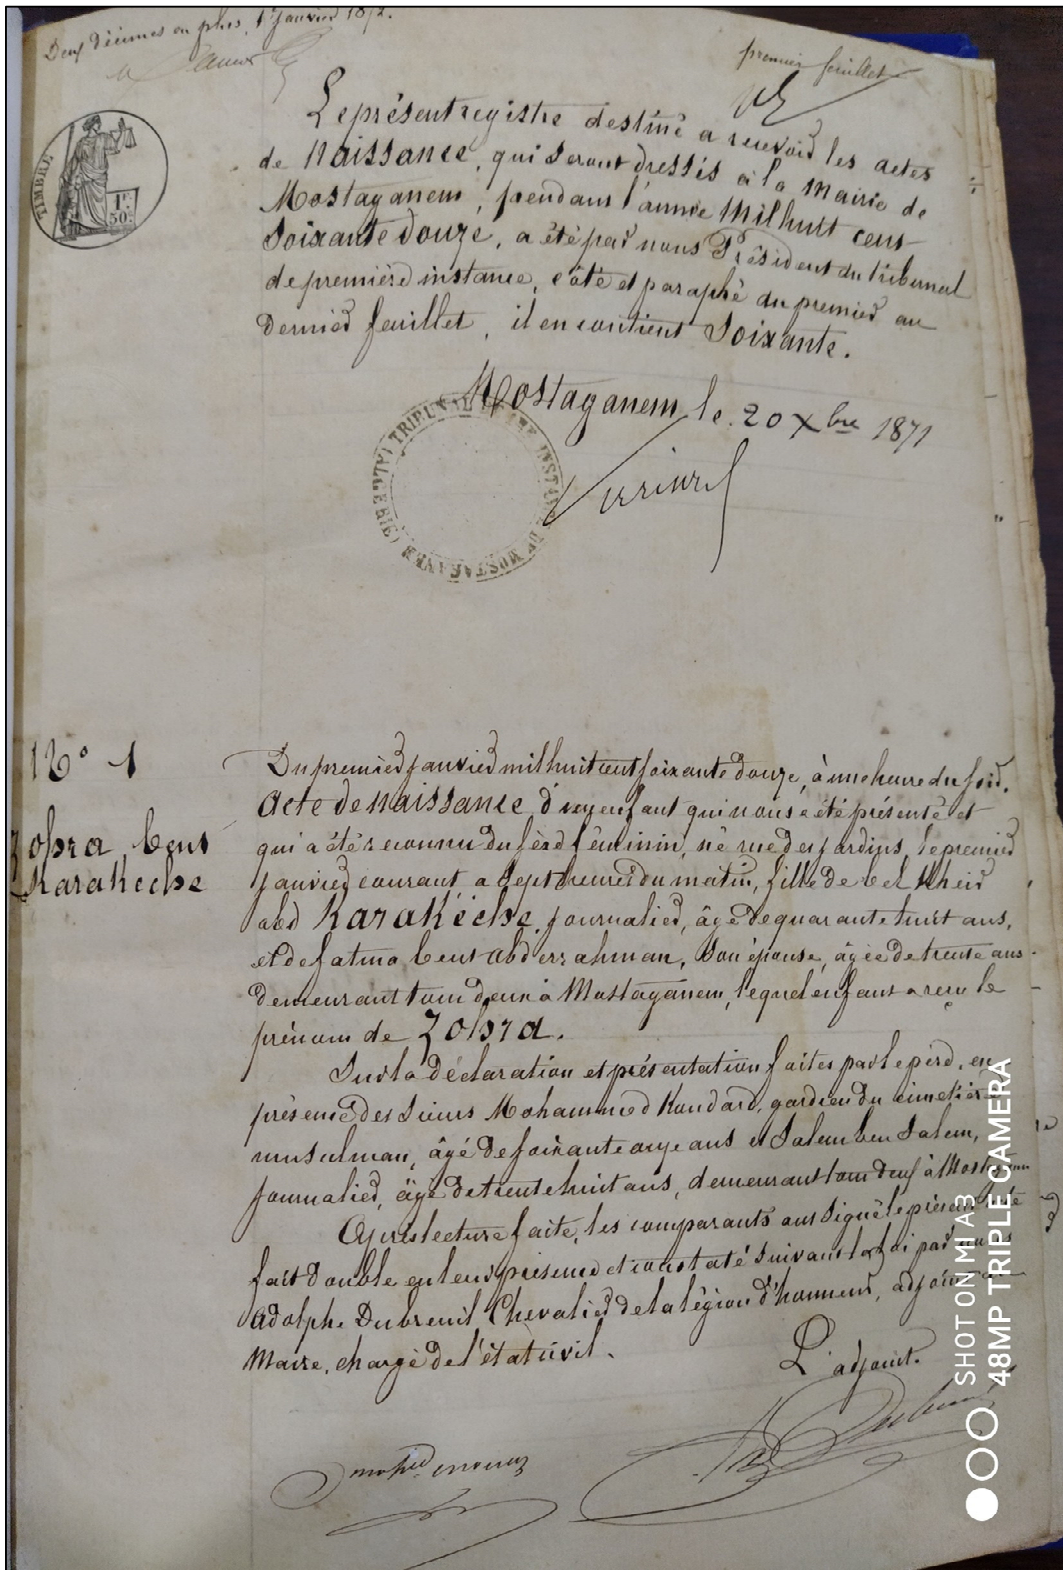 Deux décimes en plus, 1er Janvier 1872.
premier feuillet
TIMBRE
1F. 50c.
Le présent registre destiné a recevoir les actes
de Naissance, qui seront dressés à la Mairie de
Mostaganem, pendant l'année Mil huit cent
Soixante douze, a été par nous Président du tribunal
de première instance, côté et paraphé du premier au
dernier feuillet, il en contient Soixante.
Mostaganem le 20 Xbre 1871
TRIBUNAL DE 1ERE INSTANCE DE MOSTAGANEM (ALGERIE)
No 1
Zohra bent
Karahèche
Du premier janvier mil huit cent soixante douze, à une heure du soir.
Acte de naissance d'un enfant qui nous a été présenté et
qui a été reconnu du sexe féminin, né rue des jardins, le premier
janvier courant, a sept heures du matin, fille de bel Kheir
abd Karahèche, journalier, âgé de quarante huit ans,
et de fatma bent abderrahman, son épouse, âgée de trente ans
demeurant tous deux à Mostaganem, lequel enfant a reçu le
prénom de Zohra.
Sur la déclaration et présentation faites par le père, en
présence des sieurs Mohammed Kandard, gardien du cimetière
musulman, âgé de soixante onze ans et Salem ben Salem,
journalier, âgé de trente huit ans, demeurant tous deux à Mostaganem
Après lecture faite, les comparants ont signé le présent acte
fait double en leur présence et constaté suivant la loi par nous
Adolphe Dubreuil, Chevalier de la légion d'honneur, adjoint au
Maire, chargé de l'état civil.
L'adjoint.
SHOT ON MI A3
48MP TRIPLE CAMERA